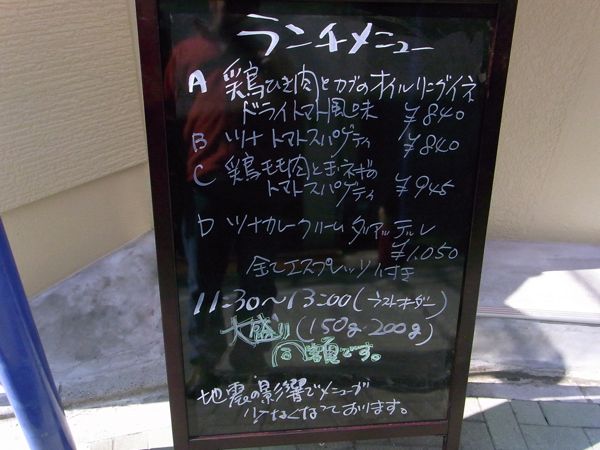 ランチメニュー
A 鶏ひき肉とカブのオイルリングイネ
ドライトマト風味 ¥840
B ツナトマトスパゲティ ¥840
C 鶏モモ肉と玉ネギの
トマトスパゲティ ¥945
D ツナカレークリームタリアッテレ
¥1,050
全てエスプレッソ付き
11:30〜13:00(ラストオーダー)
大盛り(150g-200g)
同額です。
地震の影響でメニューが
少なくなっております。